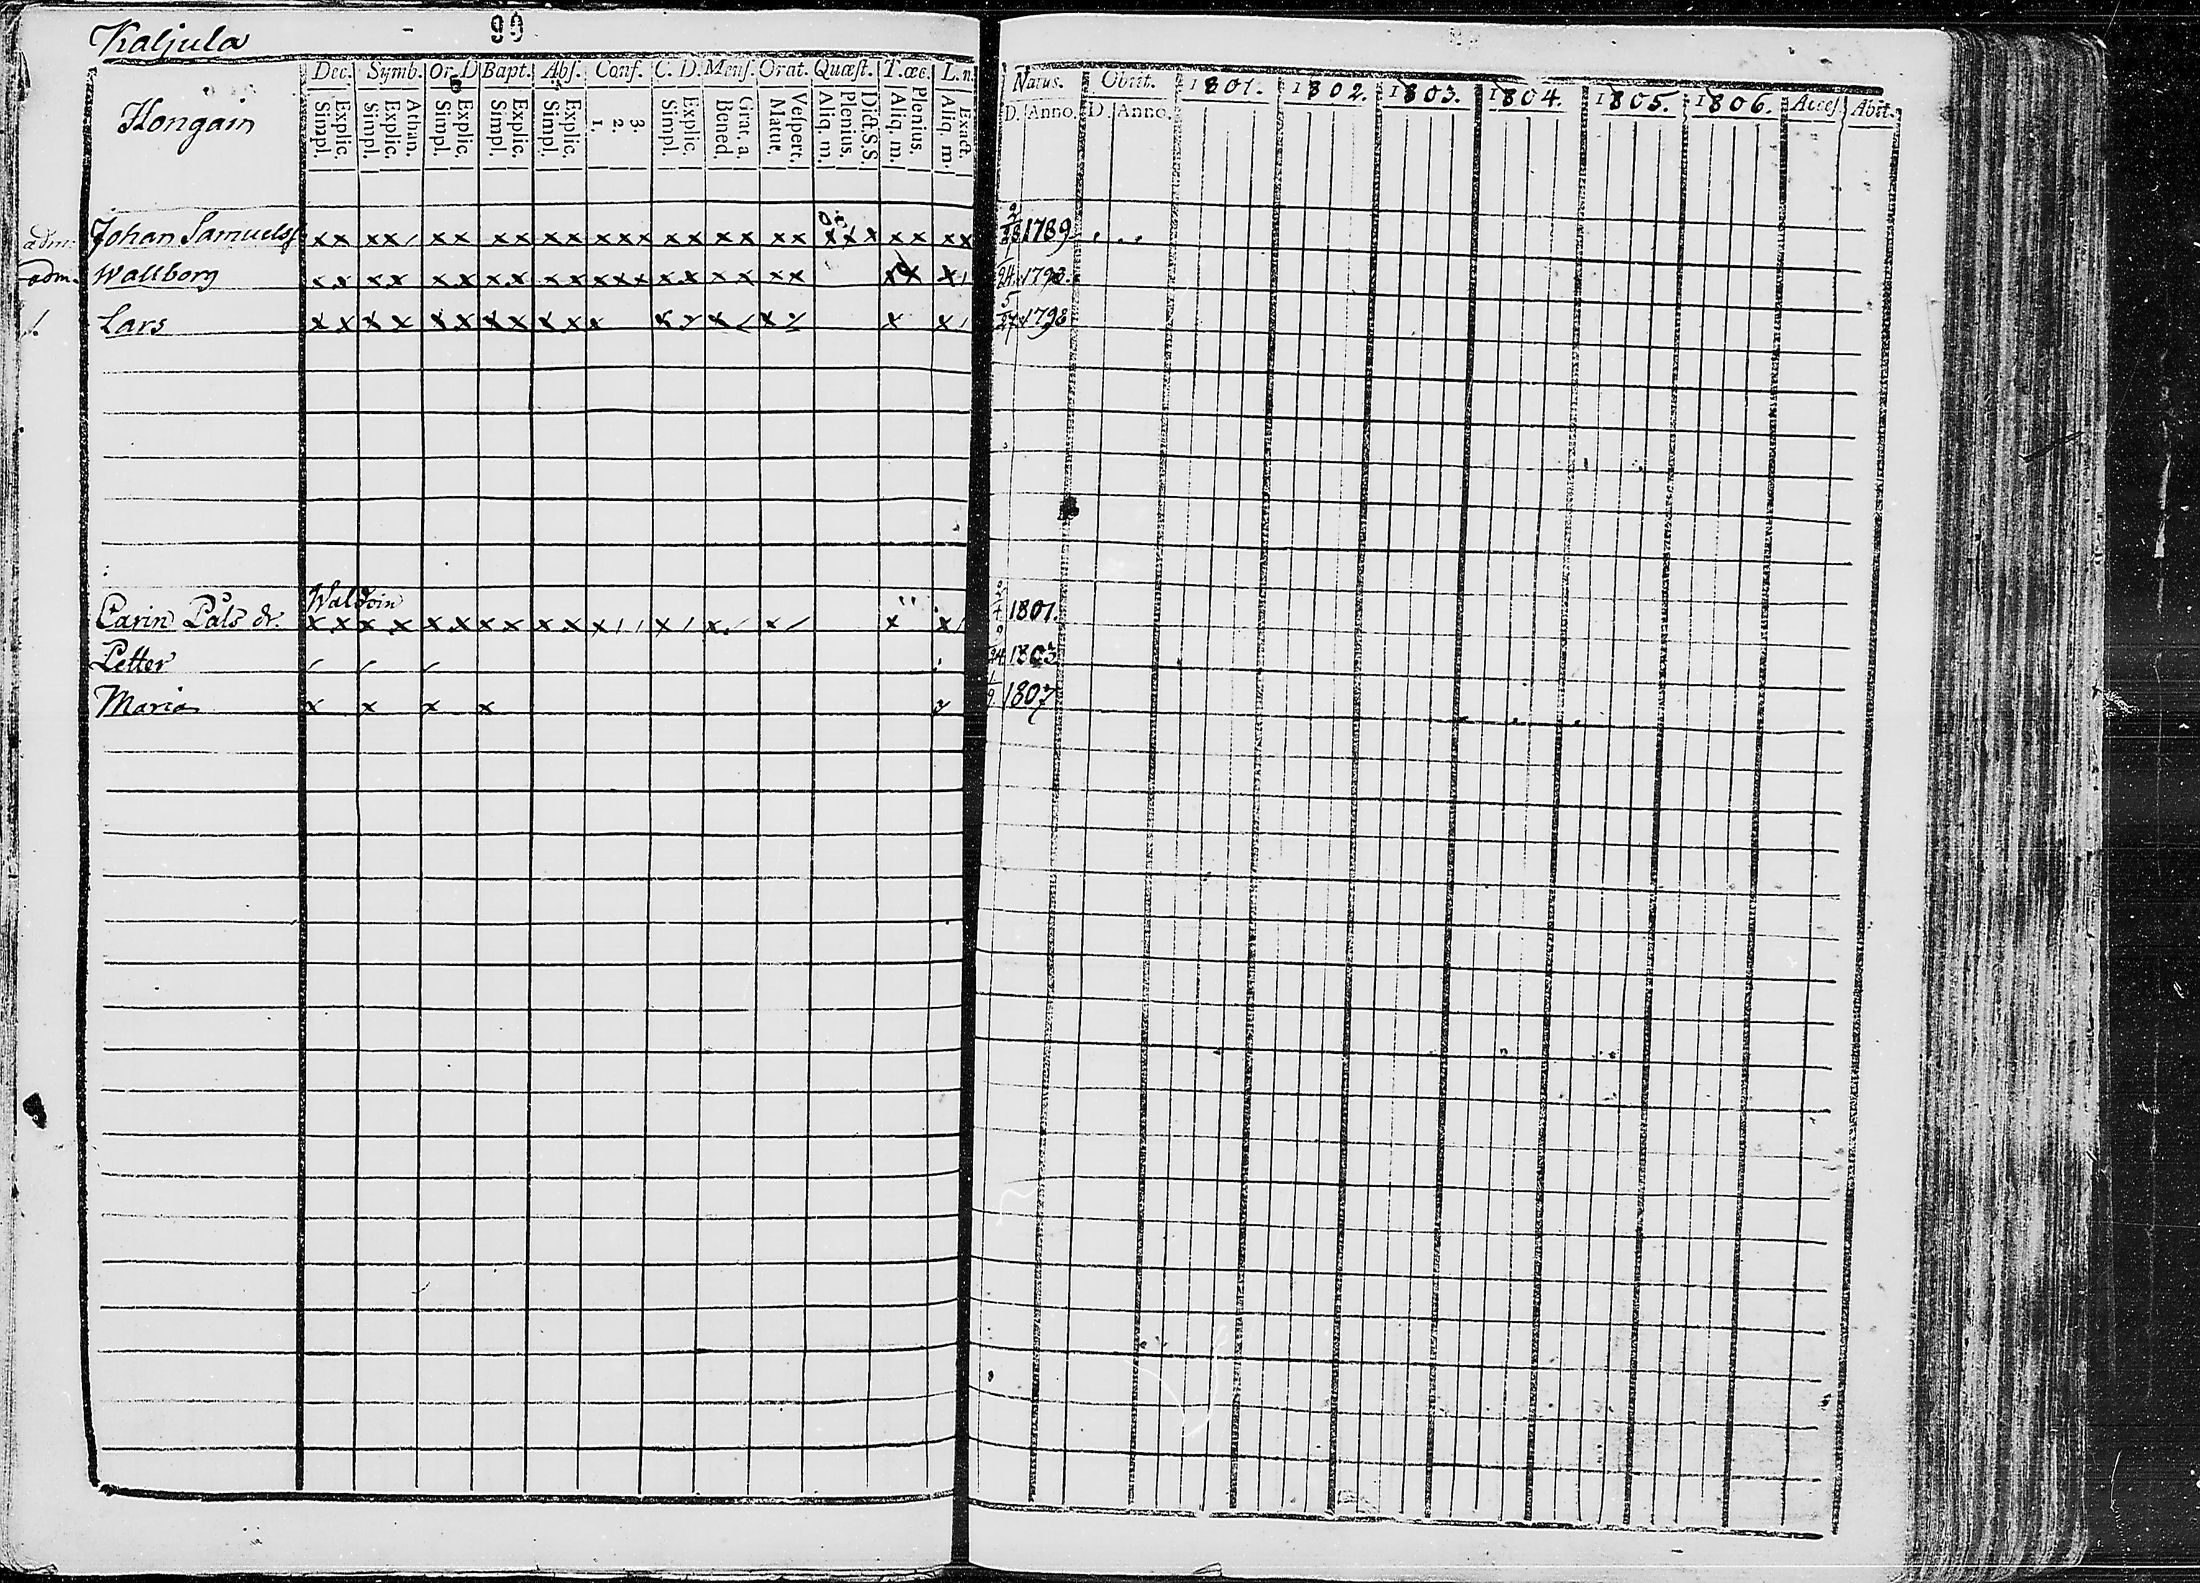 Kaljula
90
Dec. Symb. Or. D Bapt. Abs. Conf. C. D. Mens. Orat. Quæst. T. œc. L. n.
Hongain
Simpl. Explic. Simpl. Explic. Athan. Simpl. Explic. Simpl. Explic. Simpl. Explic. 1. 2. 3. Simpl. Explic. Bened. Grat. a. Matut. Vespert. Aliq. m. Plenius. Dict. S.S. Aliq. m. Plenius. Aliq. m. Exact.
adm. Johan Samuelss x x x x / x x x x x x x x x x x x x x x x x x x x x x
adm. Wallborg x x x x x x x x x x x x x x x x x x x x x x /
Lars x x x x x x x x x x x x x x x x x /
Waldoin
Carin Påls dr. x x x x x x x x x x x / / x / x / x / x x /
Petter / / /
Maria x x x x
Natus. Obiit. 1801. 1802. 1803. 1804. 1805. 1806. Acces Abit.
D. Anno. D. Anno.
1789
24 1793.
5/27 1798
1801.
24 1803
1/9 1807